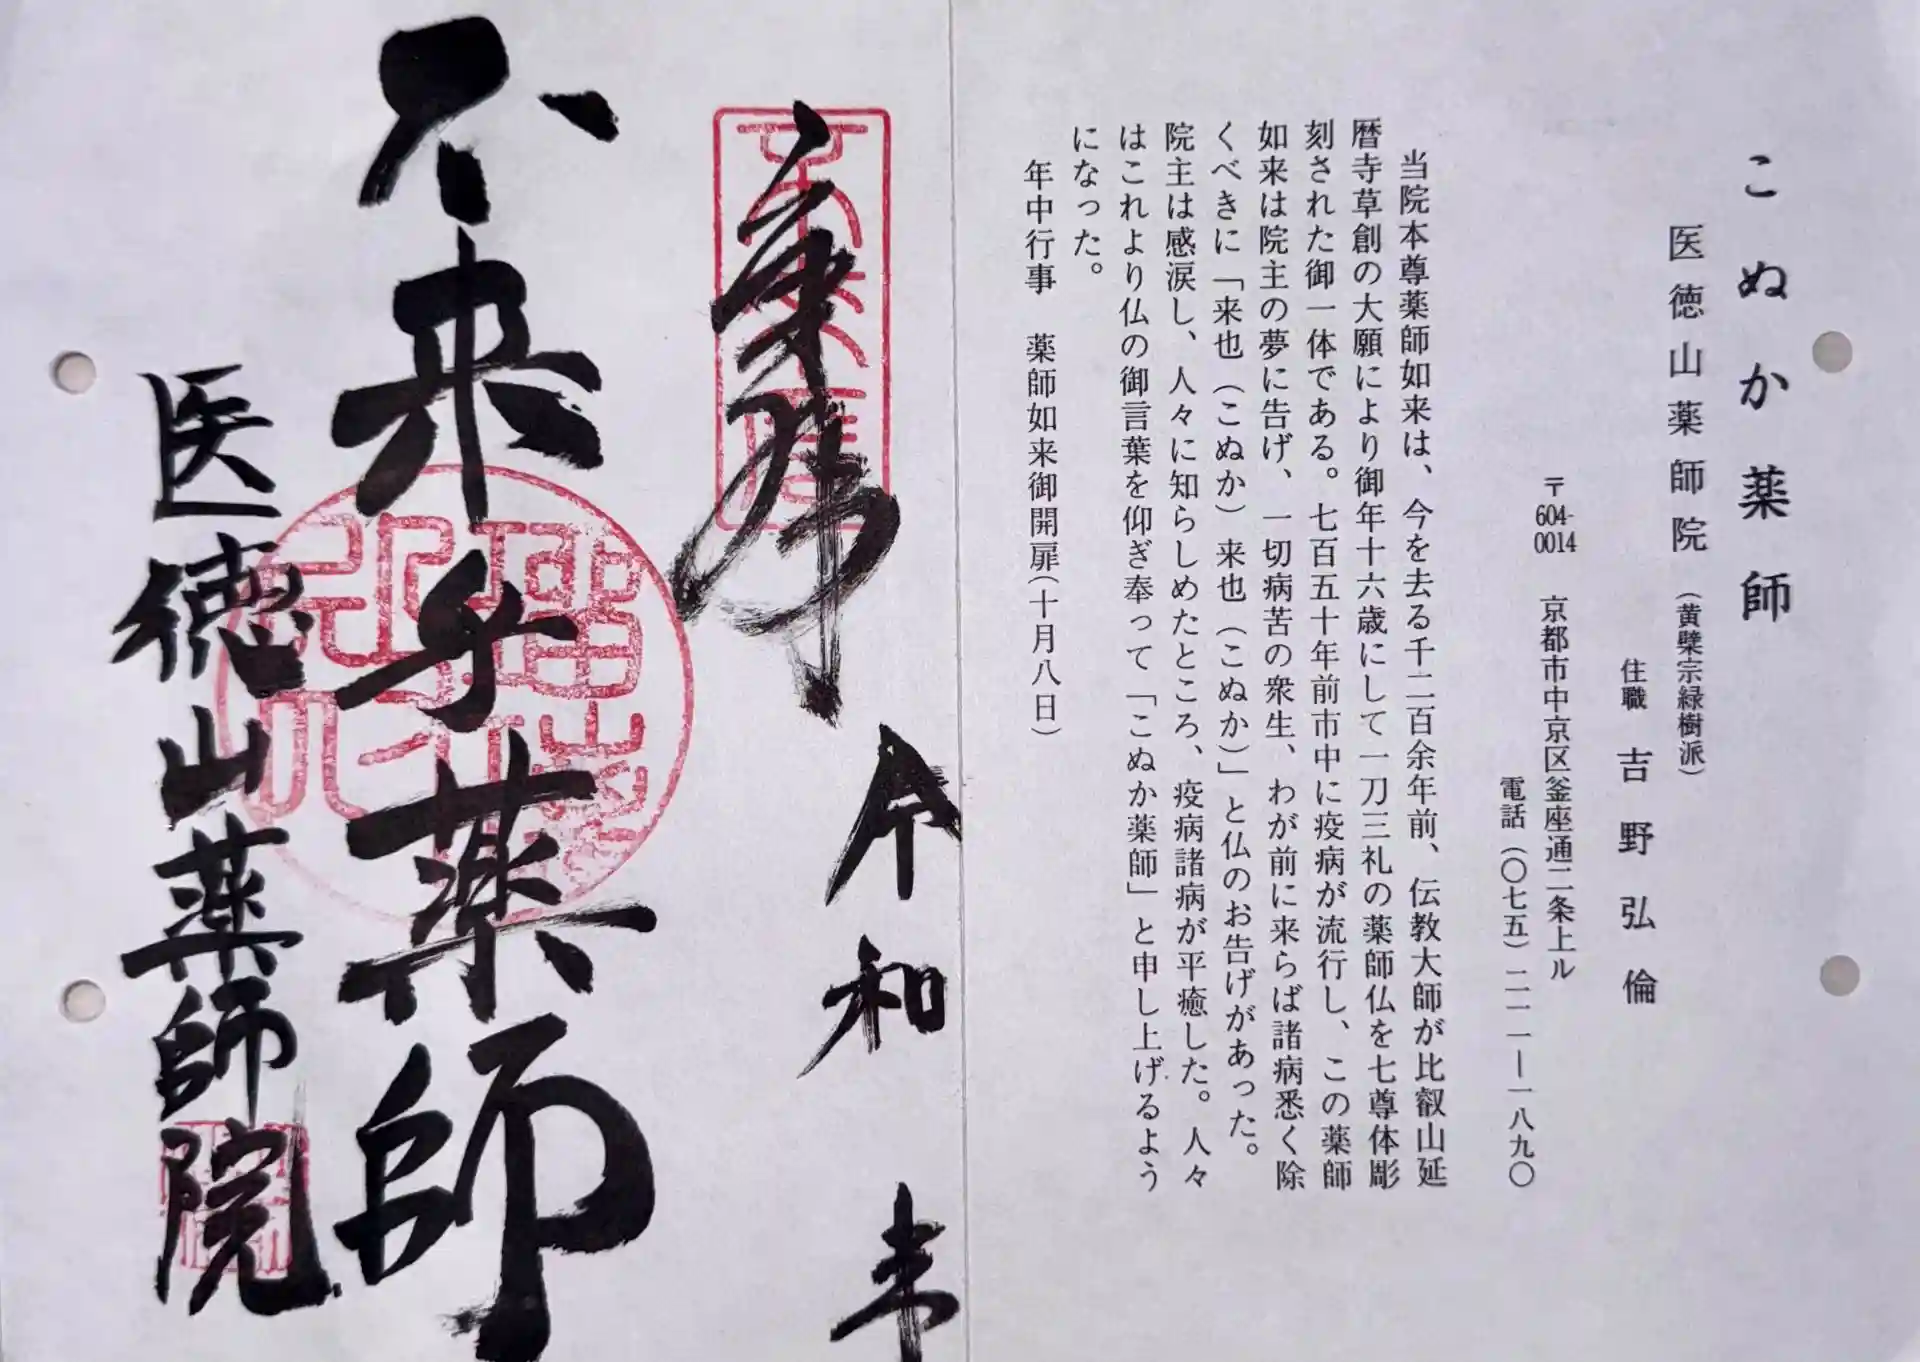 こぬか薬師
医徳山薬師院（黄檗宗緑樹派）
住職　吉野弘倫
〒604-0014　京都市中京区釜座通二条上ル
電話（〇七五）二一一―一八九〇
当院本尊薬師如来は、今を去る千二百余年前、伝教大師が比叡山延
暦寺草創の大願により御年十六歳にして一刀三礼の薬師仏を七尊体彫
刻された御一体である。七百五十年前市中に疫病が流行し、この薬師
如来は院主の夢に告げ、一切病苦の衆生、わが前に来らば諸病悉く除
くべきに「来也（こぬか）来也（こぬか）」と仏のお告げがあった。
院主は感涙し、人々に知らしめたところ、疫病諸病が平癒した。人々
はこれより仏の御言葉を仰ぎ奉って「こぬか薬師」と申し上げるよう
になった。
年中行事　薬師如来御開扉（十月八日）
奉拝
令和　来
不来乎薬師
医徳山薬師院